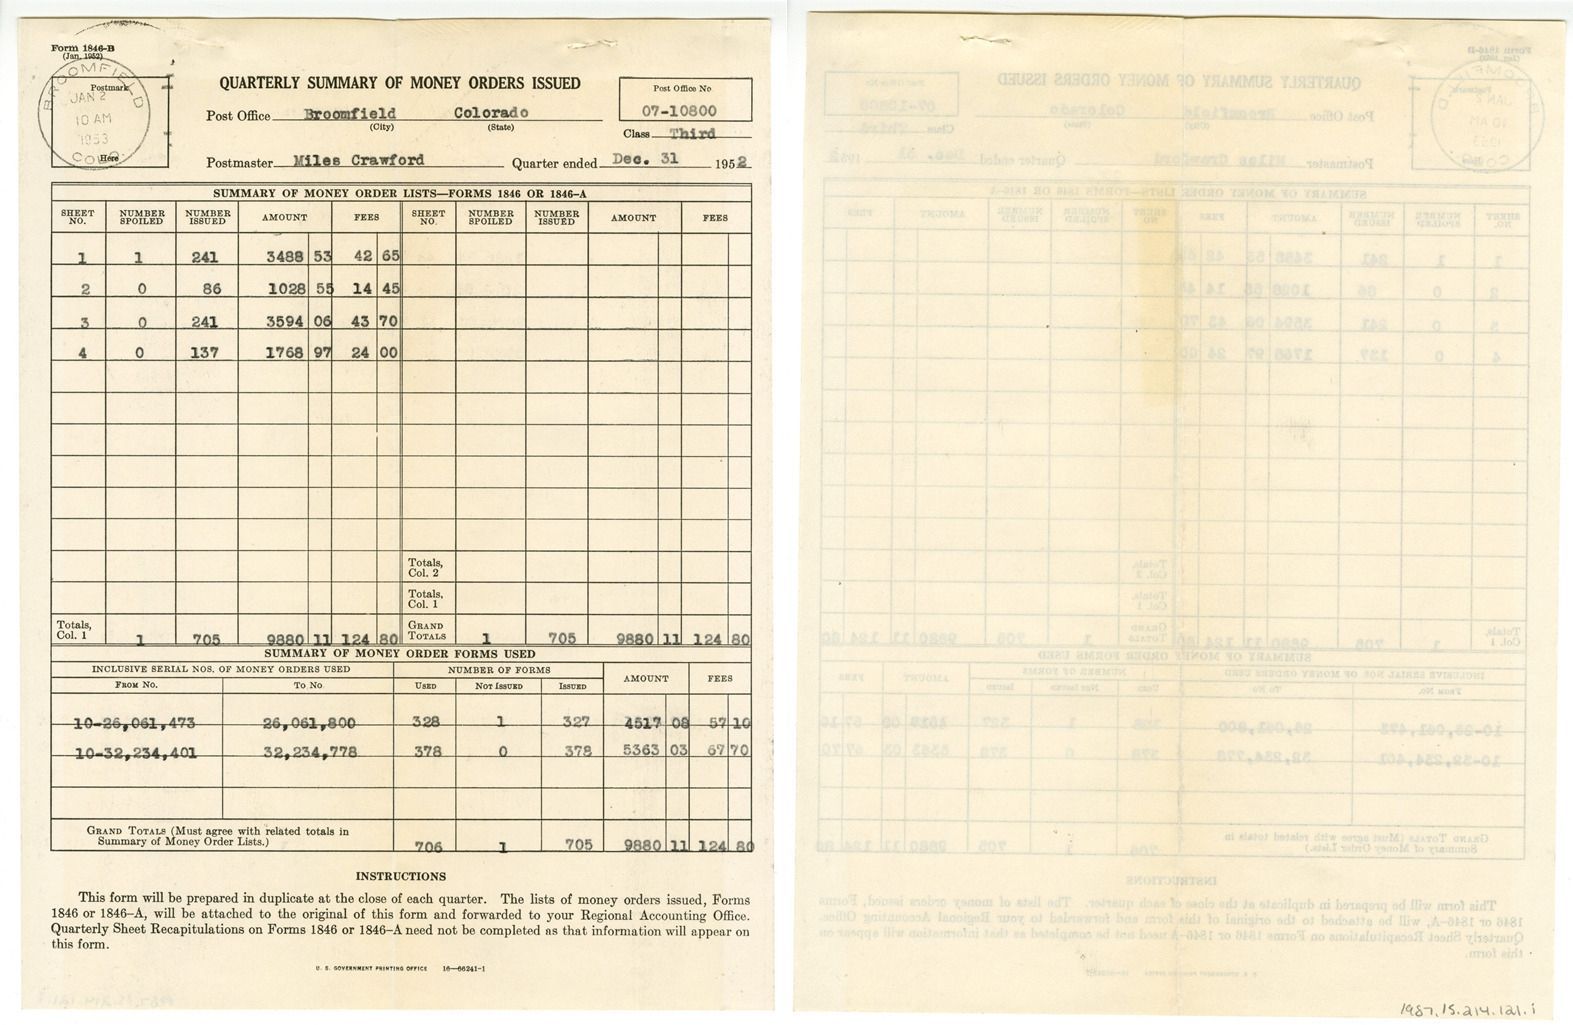 Form 1846-B
(Jan. 1952)
BROOMFIELD
JAN 2
10 AM
1953
COLO.
Postmark
Here
QUARTERLY SUMMARY OF MONEY ORDERS ISSUED
Post Office Broomfield Colorado
(City) (State)
Postmaster Miles Crawford Quarter ended Dec. 31 1952
Post Office No
07-10800
Class Third
SUMMARY OF MONEY ORDER LISTS—FORMS 1846 OR 1846-A
SHEET NO. NUMBER SPOILED NUMBER ISSUED AMOUNT FEES SHEET NO. NUMBER SPOILED NUMBER ISSUED AMOUNT FEES
1 1 241 3488 53 42 65
2 0 86 1028 55 14 45
3 0 241 3594 06 43 70
4 0 137 1768 97 24 00
Totals, Col. 2
Totals, Col. 1
Totals, Col. 1 1 705 9880 11 124 80 GRAND TOTALS 1 705 9880 11 124 80
SUMMARY OF MONEY ORDER FORMS USED
INCLUSIVE SERIAL NOS. OF MONEY ORDERS USED NUMBER OF FORMS AMOUNT FEES
FROM NO. TO NO USED NOT ISSUED ISSUED
10-26,061,473 26,061,800 328 1 327 4517 08 57 10
10-32,234,401 32,234,778 378 0 378 5363 03 67 70
GRAND TOTALS (Must agree with related totals in
Summary of Money Order Lists.) 706 1 705 9880 11 124 80
INSTRUCTIONS
This form will be prepared in duplicate at the close of each quarter. The lists of money orders issued, Forms
1846 or 1846-A, will be attached to the original of this form and forwarded to your Regional Accounting Office.
Quarterly Sheet Recapitulations on Forms 1846 or 1846-A need not be completed as that information will appear on
this form.
U. S. GOVERNMENT PRINTING OFFICE 16—66241-1
1987.15.214.121.i